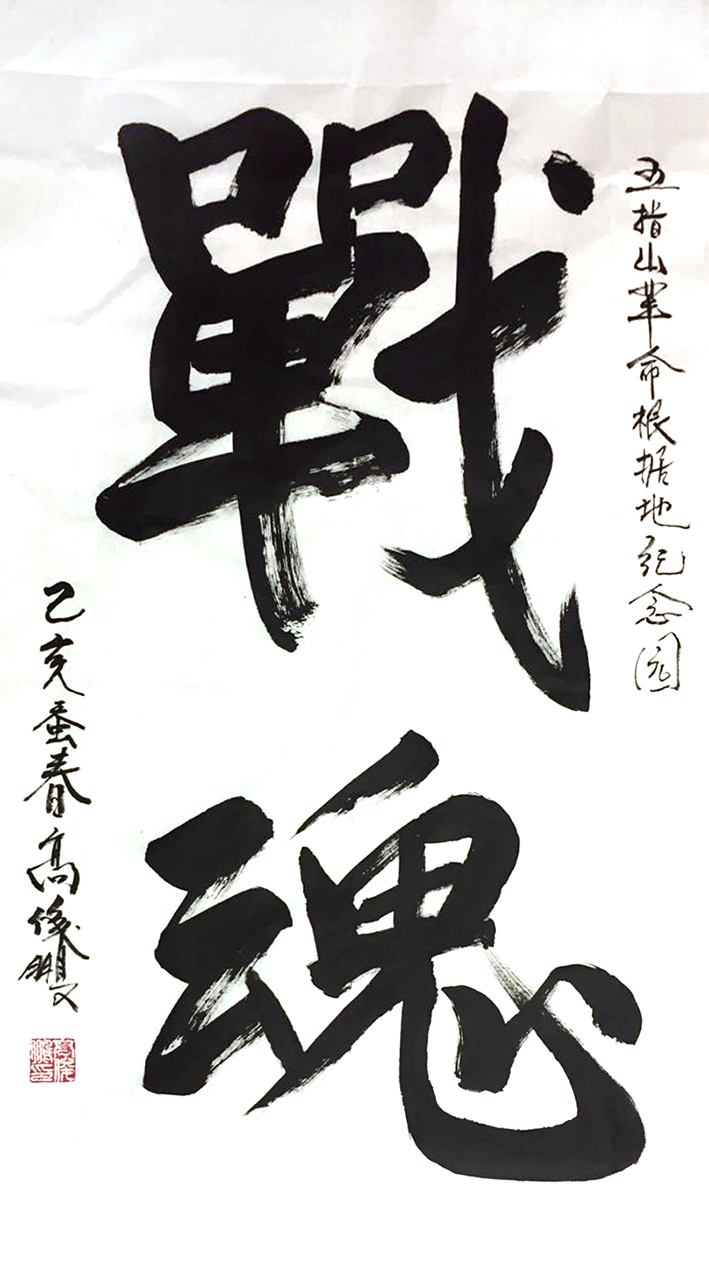 五指山革命根据地纪念园
戰魂
己亥蚤春高